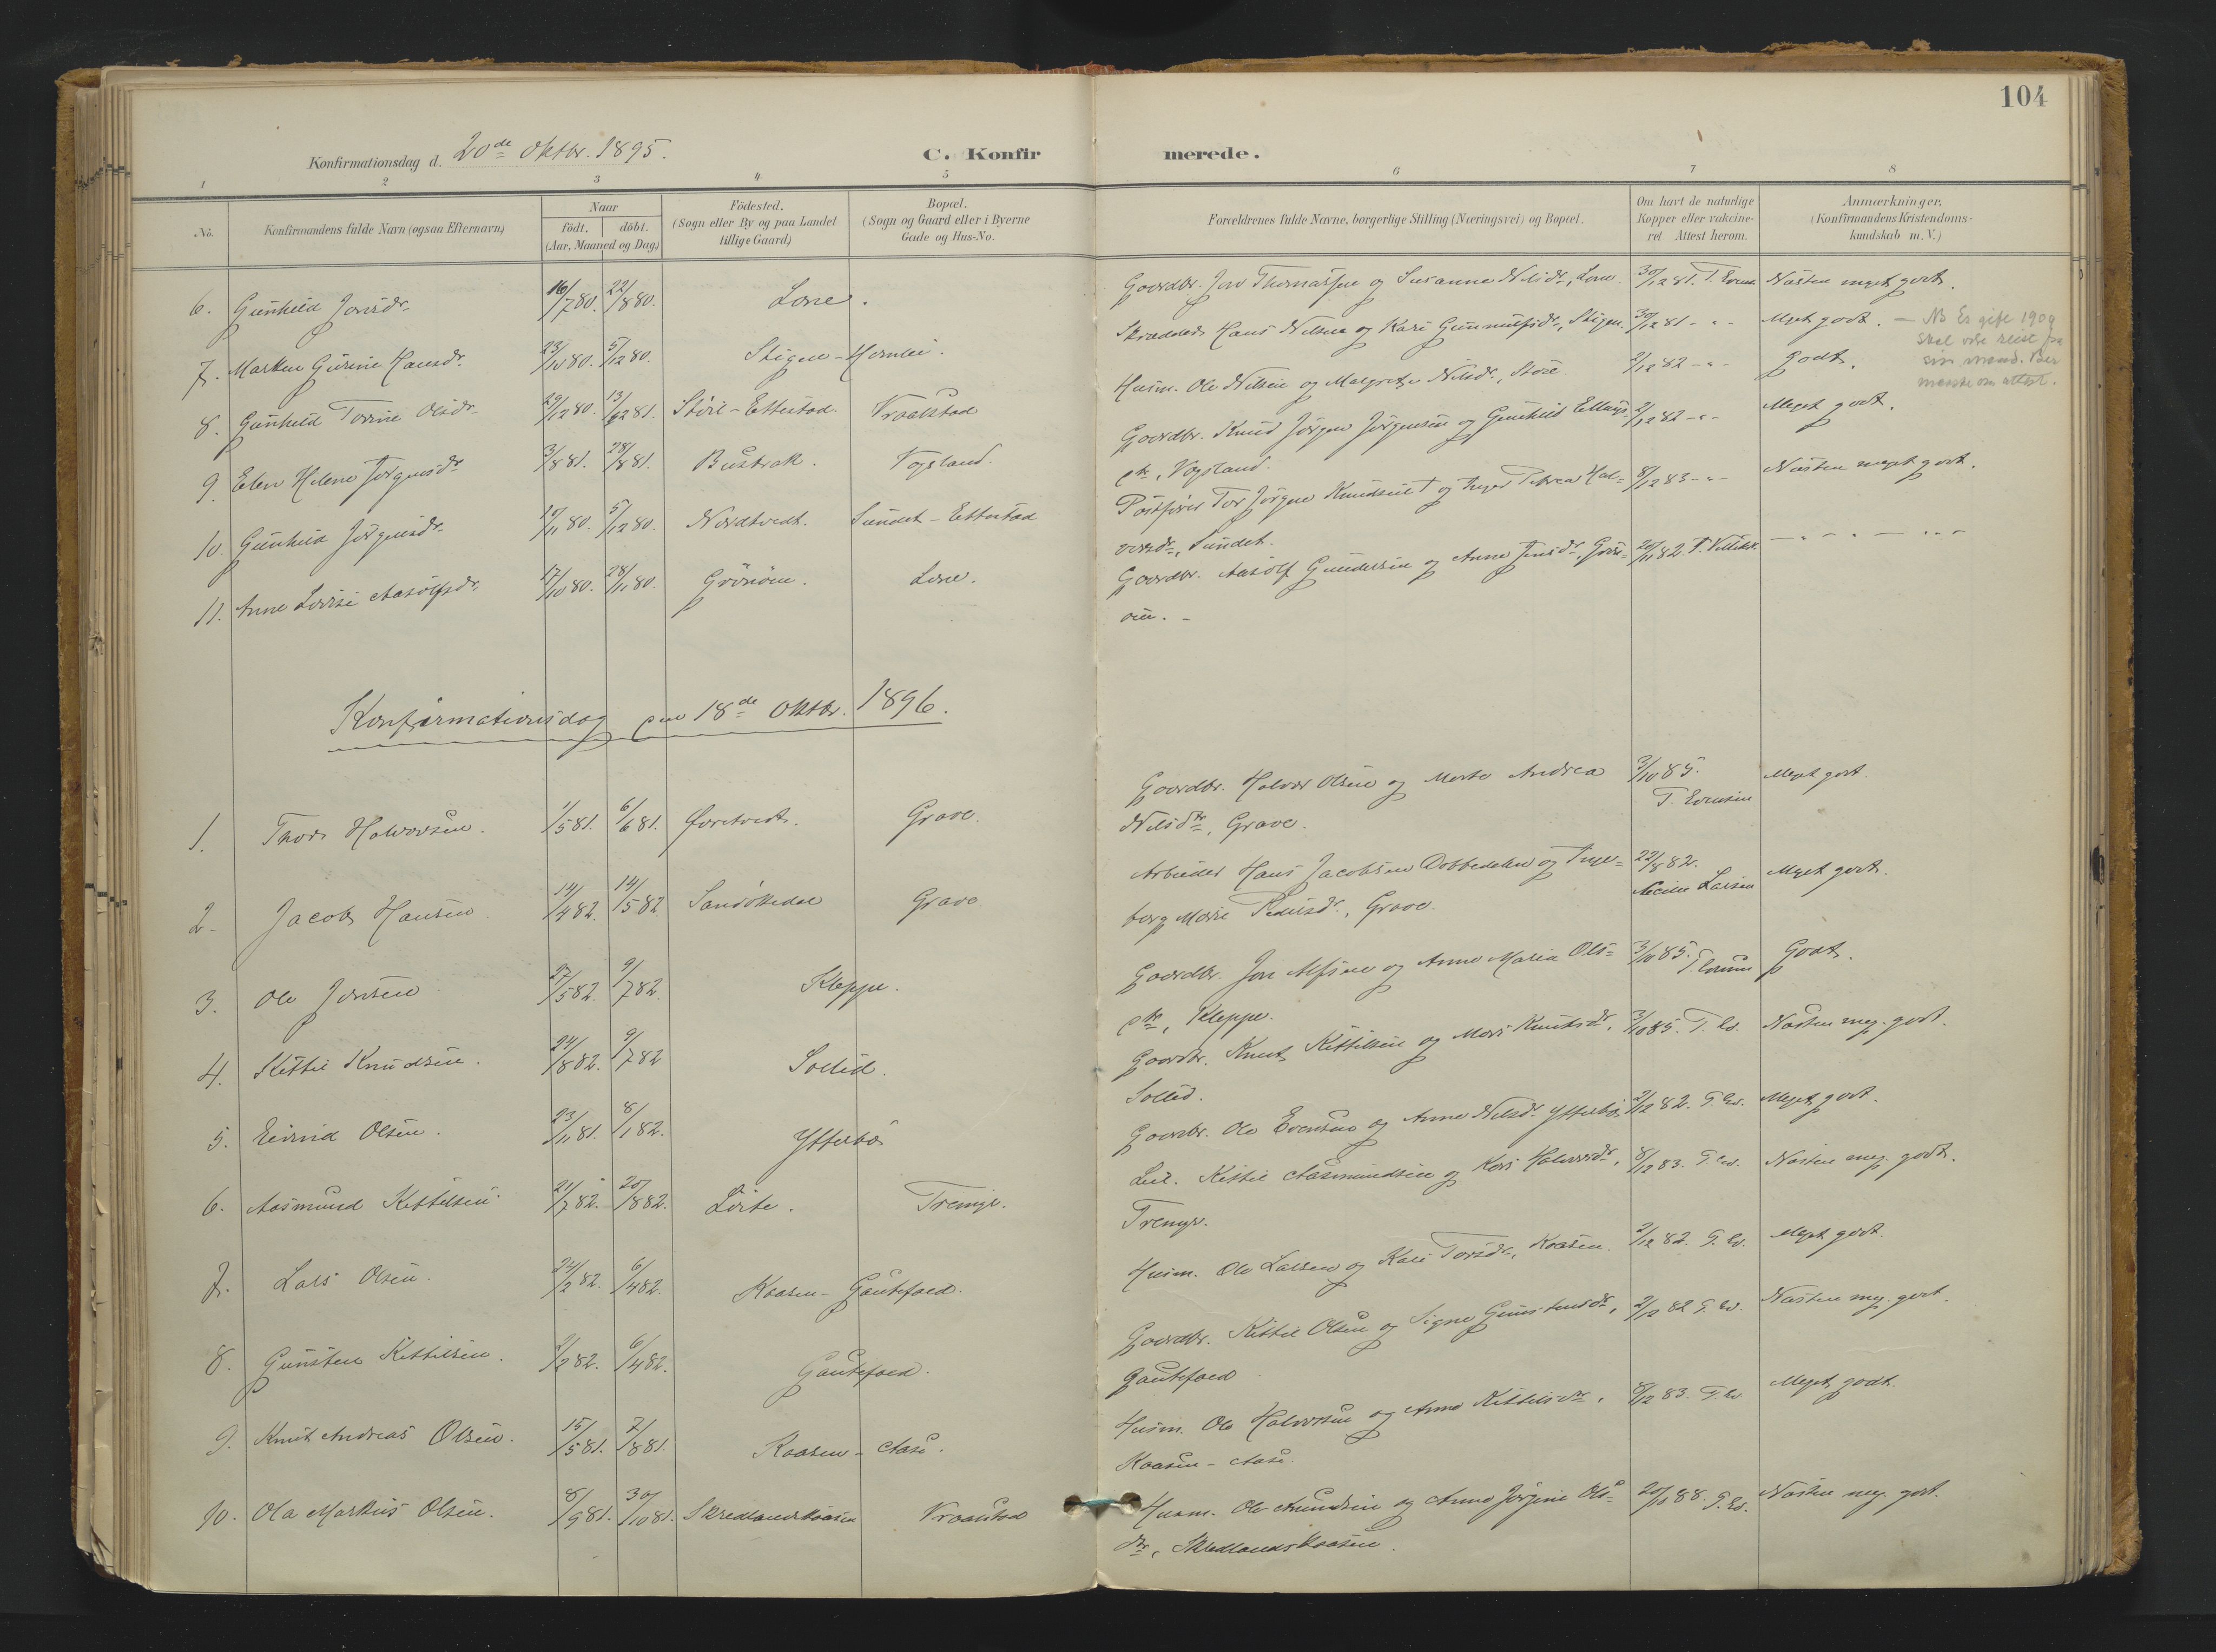 104
Konfirmationsdag d. 20de Oktbr. 1895.
C. Konfirmerede.
1 2 3 4 5 6 7 8
No.
Konfirmandens fulde Navn (ogsaa Efternavn)
Naar
født. døbt.
(Aar, Maaned og Dag)
Födested.
(Sogn eller By og paa Landet
tillige Gaard)
Bopæl.
(Sogn og Gaard eller i Byerne
Gade og Hus-No.
Forældrenes fulde Navne, borgerlige Stilling (Næringsvei) og Bopæl.
Om havt de naturlige
Kopper eller vakcine-
ret Attest herom.
Anmærkninger.
(Konfirmandens Kristendoms-
kundskab m. V.)
6. Gunhild Jonsdr. 16/7 80. 22/8 80. Lone. Gaardbr. Jon Thomassen og Susanne Nilsdr., Lone. 30/12 81. T. Evens. Næsten meget godt.
7. Marken Gurine Hansdr. 23/10 80. 5/12 80. Stigen - Skrædder Hans Nilsen og Kari Gunnulfsdr., Stigen. 30/12 81 - " - Meget godt. - NB Er gift 1909
8. Gunhild Torine Olsdr. 29/12 80. 13/2 81. - Ettestad Vraalstad Husm. Ole Nilsen og Margrethe Nilsdr., 2/12 82 - " - Godt.
9. Elen Helene Jørgensdr. 3/8 81. 28/8 81. Bustrak. Vogsland. Gaardbr. Knud Jørgen Jørgensen og Gunhild Ellings-
dtr., Vogsland. 2/12 82 - " - Meget godt.
10. Gunhild Jørgensdr. 10/11 80. 5/12 80. Nordtvedt. Sundet - Ettestad Postfører Tor Jørgen Knudsen † og Inger Petrea Hal-
vorsdr., Sundet. 8/12 83 - " - Næsten meget godt.
11. Anne Lovise Aasolfsdr. 17/10 80. 28/11 80. Lone. Gaardbr. Aasolf Gundersen og Anne Jensdr., 20/11 82. - " - - " -
Konfirmationsdag den 18de Oktbr. 1896.
1. Thor Halvorsen. 1/5 81. 6/6 81. Grave. Gaardbr. Halvor Olsen og Marte Andrea
Nilsdtr., Grave. 3/10 85.
T. Evensen Meget godt.
2. Jacob Hansen. 14/4 82. 14/5 82 Sandøkedal Grave. Arbeider Hans Jacobsen Dobbedalen og Inge-
borg Marie Pedersdr., Grave. 22/8 82.
Larsen Meget godt.
3. Ole Jonsen. 27/5 82. 9/7 82. Kleppe. Gaardbr. Jon Alfsen og Anne Maria Ols-
dtr., Kleppe. 3/10 85. Godt.
4. Kittil Knudsen. 24/ 82. 9/7 82 Sollid. Gaardbr. Knut Kittilsen og Mari Knutsdr.,
Sollid. 3/10 85. T. Ev. Næsten meg. godt.
5. Eivind Olsen. 23/11 81. 8/1 82. Ytterbø Gaardbr. Ole Evensen og Anne Nilsdr. Ytterbø. 2/12 82. T. Ev. Meget godt.
6. Aasmund Kittilsen. 21/7 82. 20/8 82. Tremyr. Leil. Kittil Aasmundsen og Kari Halvorsdr.,
Tremyr. 8/12 83. T. Ev. Næsten meg. godt.
7. Lars Olsen. 24/2 82. 6/4 82. Kaasen - Gautefald. Husm. Ole Larsen og Kari Torsdr., Kaasen. 2/12 82. T. Ev. Meget godt.
8. Gunsten Kittilsen. 2/2 82. 6/4 82. Gautefald. Gaardbr. Kittil Olsen og Signe Gunstensdr.,
Gautefald 2/12 82 T. Ev. Næsten meg. godt.
9. Knut Andreas Olsen. 15/5 81. 7/8 81. Kaasen - Aase. Husm. Ole Halvorsen og Anne Kittilsdtr.,
Kaasen - Aase. 8/12 83. T. Ev. Meget godt.
10. Ola Markus Olsen. 8/9 81. 30/10 81. Skredlandskaasen Vraalstad Husm. Ole Amundsen og Anne Jørgine Ols-
dtr., Skredlandskaasen. 20/ 88. T. Ev. Næsten meg. godt.